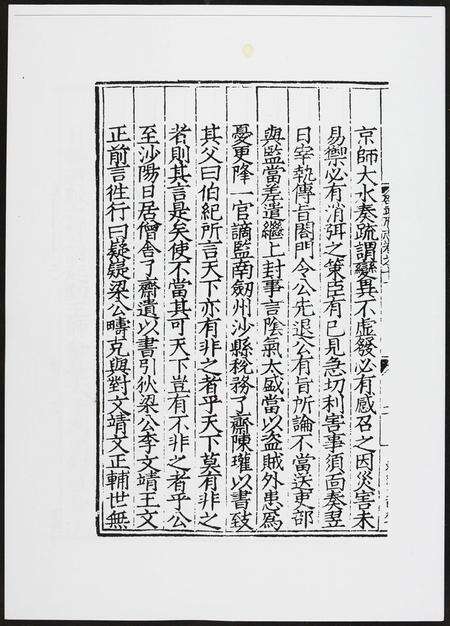 京師大水奏疏謂變異不虛發必有感召之因災害未
易禦必有消弭之策臣有已見急切利害事須面奏翌
日宰執傳旨閤門令公先退公有旨所論不當送吏部
與監當差遣繼上封事言陰氣太盛當以盗賊外患爲
憂更降一官謫監南劒州沙縣稅務了齋陳瓘以書致
其父曰伯紀所言天下亦有非之者乎天下莫有非之
者則其言是矣使不當其可天下豈有不非之者乎公
至沙陽日居僧舎了齋遺以書引狄梁公李文靖王文
正前言徃行曰嶷嶷梁公疇克與對文靖文正輔世無